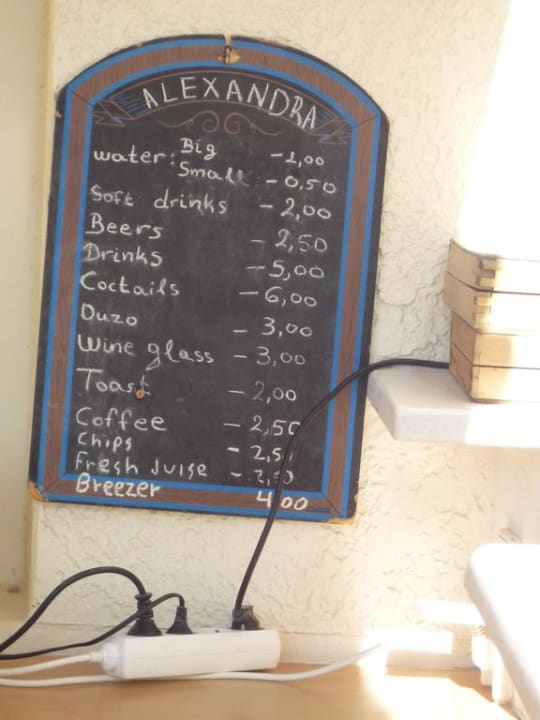 ALEXANDRA
water: Big - 1,00
Small - 0,50
Soft drinks - 2,00
Beers - 2,50
Drinks - 5,00
Coctails - 6,00
Ouzo - 3,00
Wine glass - 3,00
Toast - 2,00
Coffee - 2,50
Chips - 2,5
Fresh Juise -
Breezer 4,00